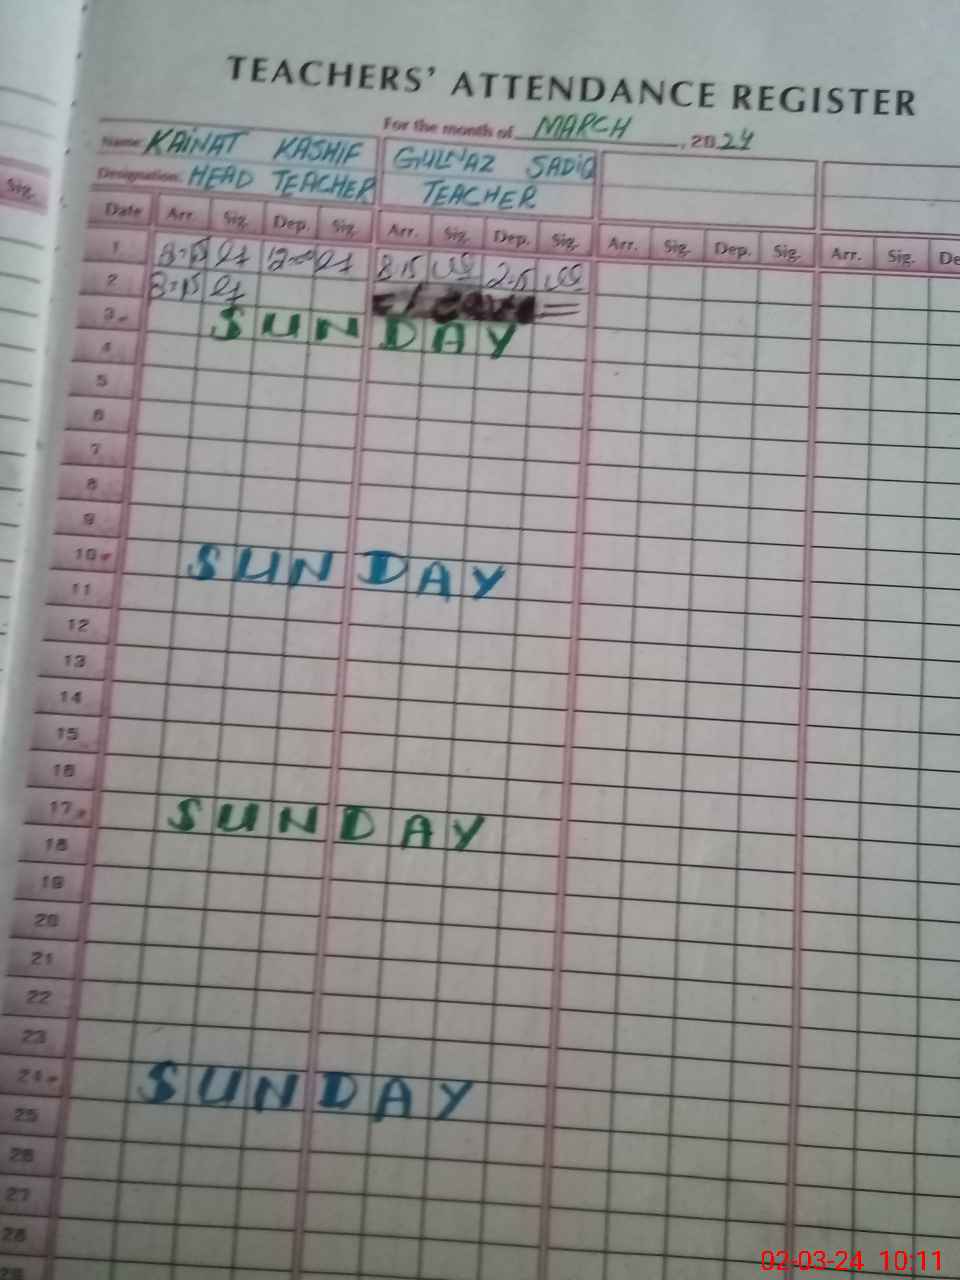 TEACHERS' ATTENDANCE REGISTER
For the month of MARCH, 2024
Name KAINAT KASHIF GULNAZ SADIQ
Designation. HEAD TEACHER TEACHER
Sig.
Date Arr. Sig. Dep. Sig. Arr. Sig. Dep. Sig. Arr. Sig. Dep. Sig. Arr. Sig. De
1 8:15 8.15 2.15
2 8:15
3 SUNDAY
4
5
6
7
8
9
10 SUNDAY
11
12
13
14
15
16
17 SUNDAY
18
19
20
21
22
23
24 SUNDAY
25
26
27
28
29
02-03-24 10:11